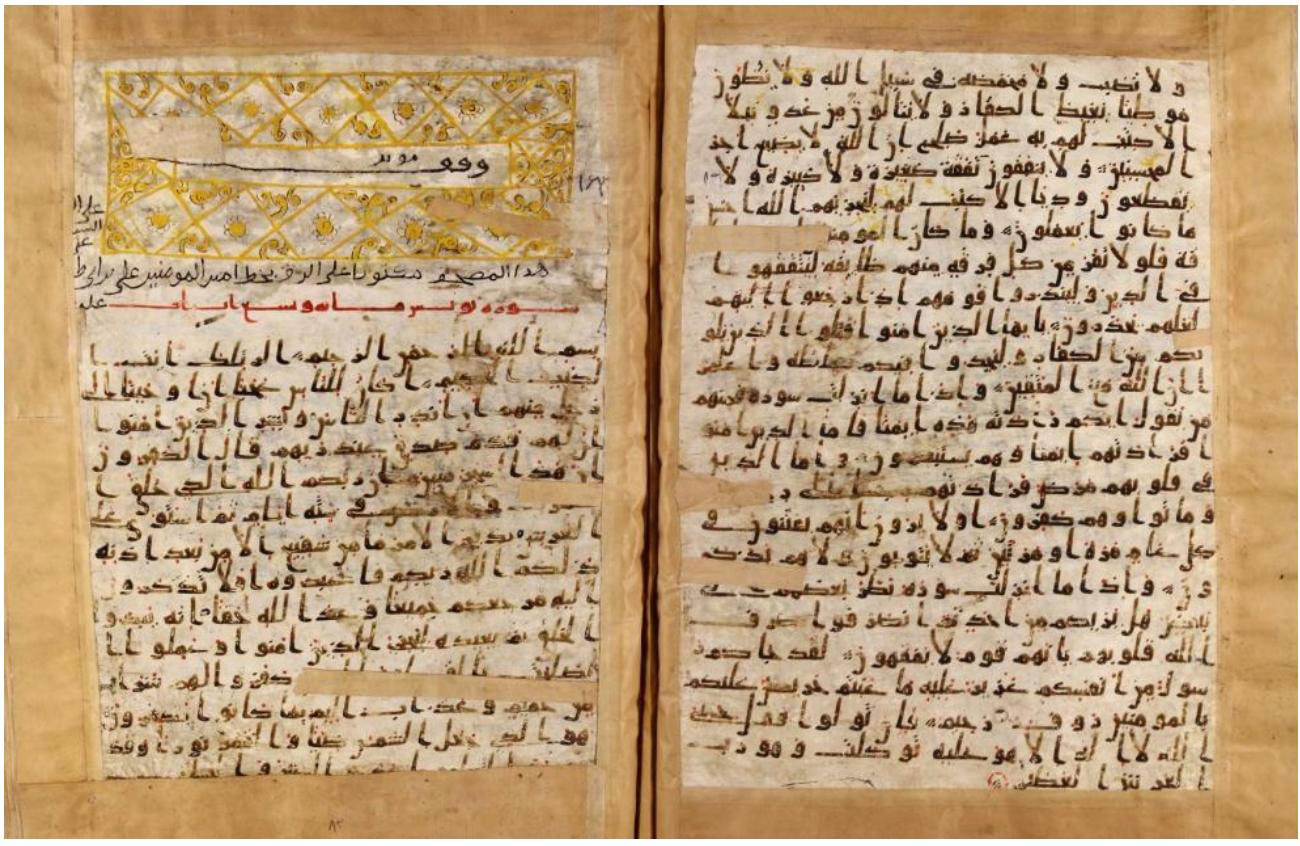 و لا نصب و لا مخمصة في سبيل الله و لا يطون
موطئا يغيظ الكفار و لا ينالون من عدو نيلا
الا كتب لهم به عمل صلح ان الله لا يضيع اجر
المحسنين و لا ينفقون نفقة صغيرة و لا كبيرة و لا
يقطعون وديا الا كتب لهم ليجزيهم الله احسن
ما كانوا يعملون و ما كان المومنو
فة فلولا نفر من كل فرقة منهم طايفة ليتفقهوا
في الدين و لينذروا قومهم اذا رجعوا اليهم
لعلهم يحذرون يايها الذين امنوا قتلوا الذين يلو
نكم من الكفار و ليجدوا فيكم غلظة و اعلمو
ا ان الله مع المتقين و اذا ما انزلت سورة فمنهم
من يقول ايكم زادته هذه ايمنا فاما الذين امنو
ا فزادتهم ايمنا و هم يستبشرون و اما الذين
في قلوبهم مرض فزادتهم رجسا الى ر
و ماتوا و هم كفرون او لا يرون انهم يفتنون في
كل عام مرة او مرتين ثم لا يتوبون و لا هم يذكر
ون و اذا ما انزلت سورة نظر بعضهم
بعض هل يريكم من احد ثم انصرفوا صرف
الله قلوبهم بانهم قوم لا يفقهون لقد جاكم ر
سول من انفسكم عزيز عليه ما عنتم حريص عليكم
بالمومنين روف رحيم فان تولوا فقل حسبي
الله لا اله الا هو عليه توكلت و هو رب
العرش العظيم
وقف موبد
هذا المصحف مكتوبا على الرق بخط امير المومنين علي بن ابي ط
سورة يونس مائة وتسع ايات
بسم الله الرحمن الرحيم الر تلك ايت ا
لكتب الحكيم اكان للناس عجبا ان اوحينا الى
رجل منهم ان انذر الناس و بشر الذين امنوا
ان لهم قدم صدق عند ربهم قال الكفرون
ان هذا لسحر مبين ان ربكم الله الذي خلق ا
و الارض في ستة ايام ثم استوى على
العرش يدبر الامر ما من شفيع الا من بعد اذنه
ذلكم الله ربكم فاعبدوه افلا تذكرون
اليه مرجعكم جميعا وعد الله حقا انه يبدوا
الخلق ثم يعيده ليجزي الذين امنوا و عملوا ا
لصلحت بالقسط كفروا لهم شراب
من حميم و عذاب اليم بما كانوا يكفرون
هو الذي جعل الشمس ضيا و القمر نورا و قد